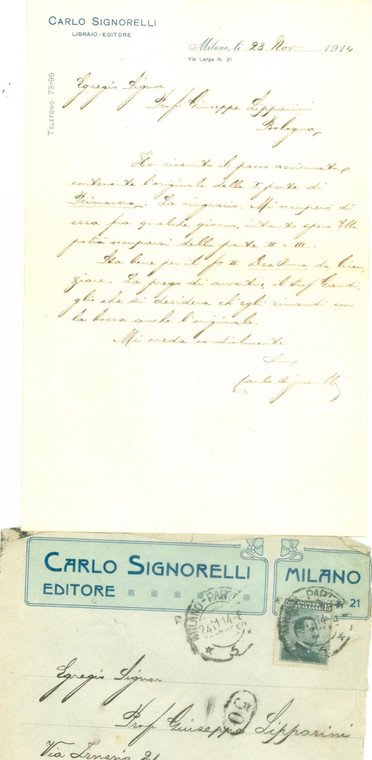 CARLO SIGNORELLI
LIBRAIO-EDITORE
Milano, li 23 Nov 1914
Via Larga N. 21
TELEFONO 73-99
Egregio Signor
Prof. Giuseppe Lipparini
Bologna
Ho ricevuto il pacco assicurato
contenente l'originale della I parte di
Primavera. La ringrazio. Mi occuperò di
essa fra qualche giorno, intanto spero Ella
potrà occuparsi della parte II e III.
Sta bene per il fo II da licen
ziare. La prego di avvertire il Prof.
gli che si desidera ch'egli rimandi con
la bozza anche l'originale.
Mi creda cordialmente
Suo
Carlo Signorelli
CARLO SIGNORELLI
EDITORE
MILANO
21
MILANO
15
Egregio Signor
Prof. Giuseppe Lipparini
Via Irnerio 21